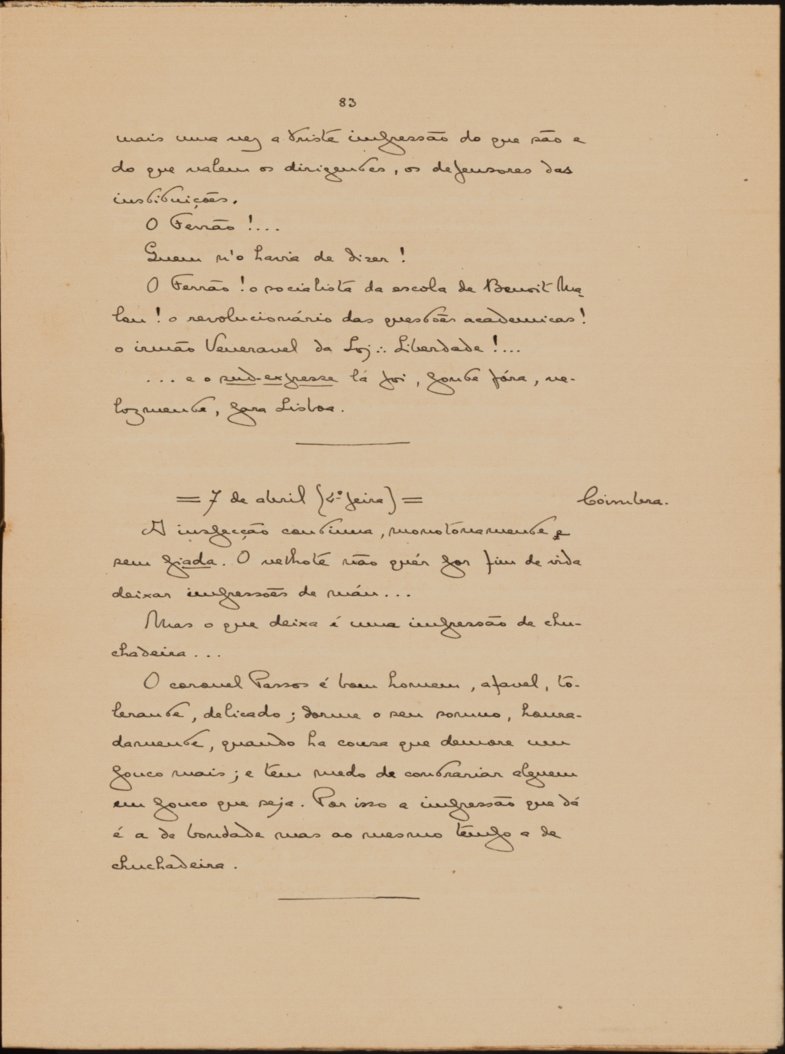 83
mais uma vez a triste impressão do que são e
do que valem os dirigentes, os defensores das
instituições.
O Ferrão!...
Quem n'o havia de dizer!
O Ferrão! o socialista da escola de Benoit Ma-
lon! o revolucionário das questões academicas!
o irmão Veneravel da Loj∴ Liberdade!...
... e o sud-expresse lá foi, ponte fóra, ve-
lozmente, para Lisboa.
= 7 de abril (4.ª feira) = Coimbra.
A inspecção continua, monotonamente e
sem piada. O velhote não quér por fim de vida
deixar impressões de máu...
Mas o que deixa é uma impressão de chu-
chadeira...
O coronel Passos é bom homem, afavel, to-
lerante, delicado; dorme o seu somno, honra-
damente, quando ha cousa que demore um
pouco mais; e tem medo de contrariar alguem
em pouco que seja. Por isso a impressão que dá
é a de bondade mas ao mesmo tempo a de
chuchadeira.